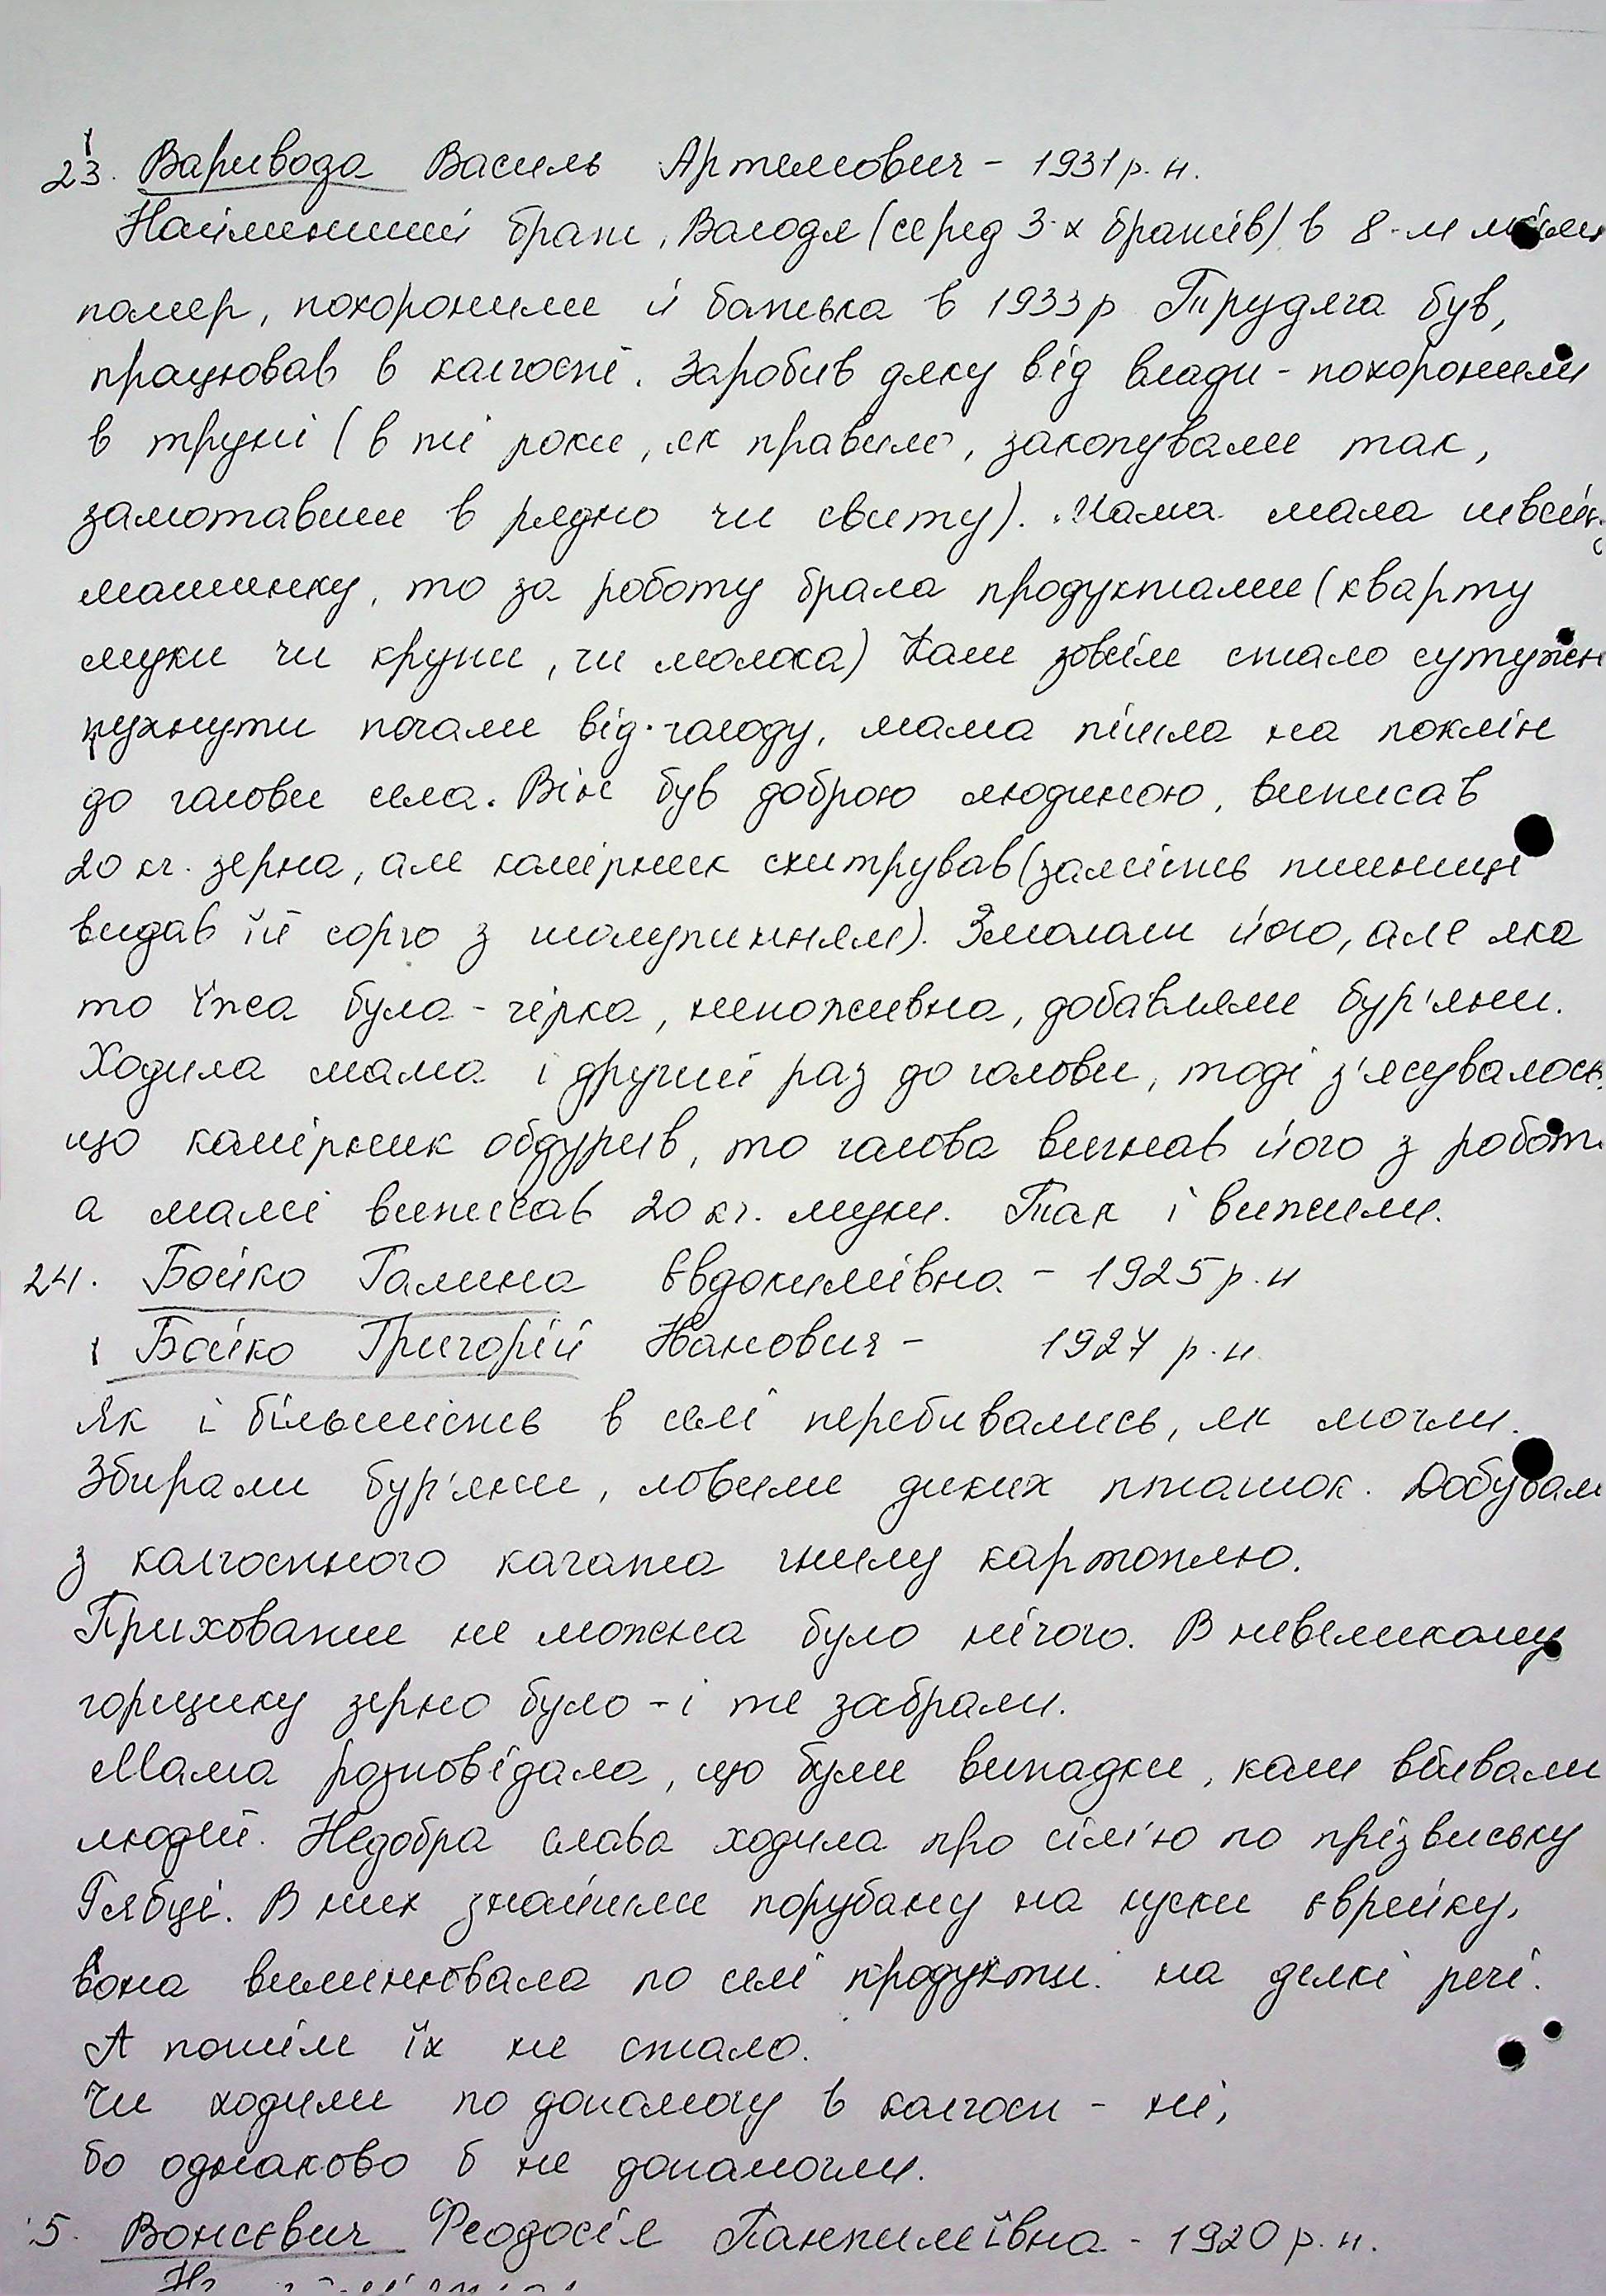 23. Варивода Василь Артемович - 1931 р. н.
Найменший брат, Володя (серед 3-х братів) в 8-м
помер, похоронили й батька в 1933 р Трудяга був,
працював в колгоспі. Заробив дяку від влади - похоронили
в труні (в ті роки, як правило, закопували так,
замотавши в рядно чи свиту). Мама мала швейн.
машинку, то за роботу брала продуктами (кварту
муки чи крупи, чи молока) Коли зовсім стало сутужн
пухнути почали від голоду, мама пішла на поклін
до голови села. Він був доброю людиною, виписав
20 кг. зерна, але комірник схитрував (замість пшениці
видав їй сорго з шолупинням). Змололи його, але яка
то їжа була - гірка, непоживна, добавляли бур'яни.
Ходила мама і другий раз до голови, тоді з'ясувалось
що комірник обдурив, то голова вигнав його з робот
а мамі виписав 20 кг. муки. Так і вижили.
24. Бойко Галина Євдокимівна - 1925 р. н
і Бойко Григорій Іванович - 1927 р. н.
Як і більшість в селі перебивались, як могли.
Збирали бур'яни, ловили диких пташок. Добували
з колгоспного кагата гнилу картоплю.
Приховати не можна було нічого. В невеликому
горщику зерно було - і те забрали.
Мама розповідала, що були випадки, коли вбивали
людей. Недобра слава ходила про сім'ю по прізвиську
Гябці. В них знайшли порубану на куски єврейку,
вона вимінювала по селі продукти на деякі речі.
А потім їх не стало.
Чи ходили по допомогу в колгосп - ні,
бо однаково б не допомогли.
5. Вонсєвич Феодосія Панкимівна - 1920 р. н.